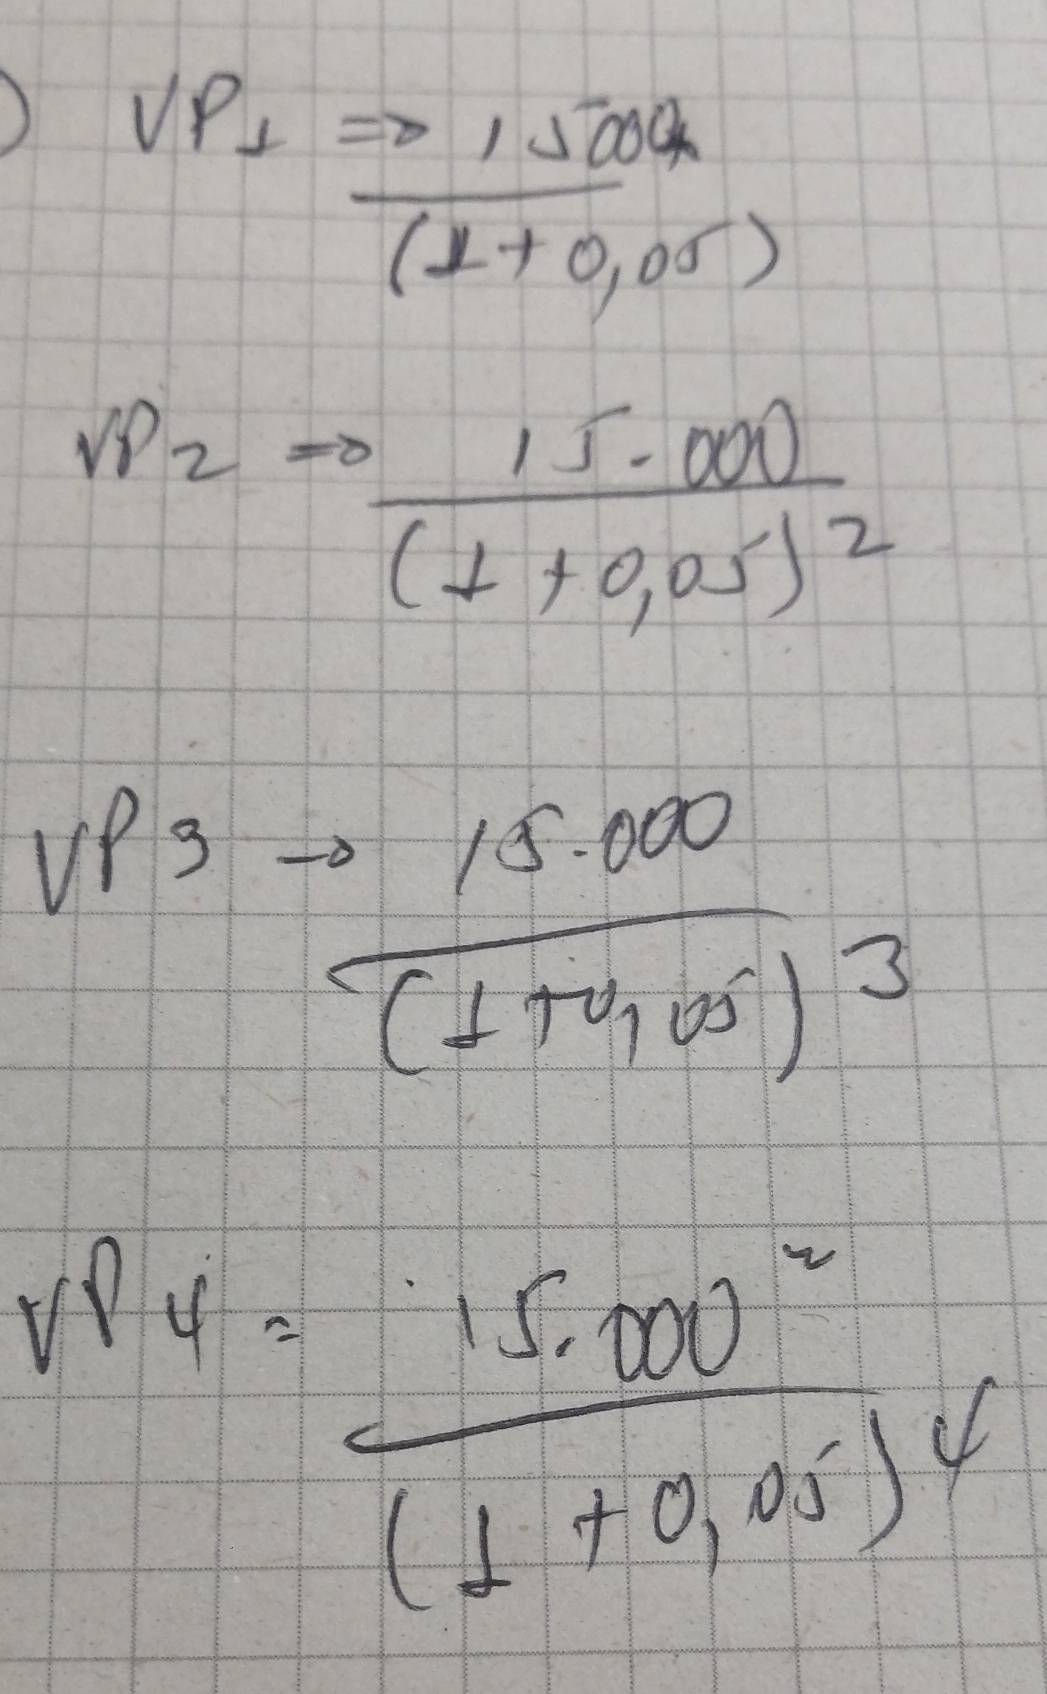 ) VP1 => 15000
(1+0,05)
VP2 => 15.000
(1+0,05)2
VP3 → 15.000
(1+0,05)3
VP4 = 15.000 2
(1+0,05)4